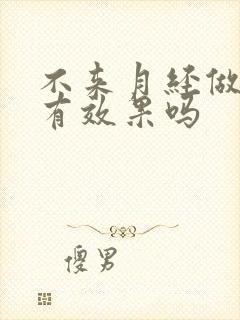 不来月经做
有效果吗
傻男